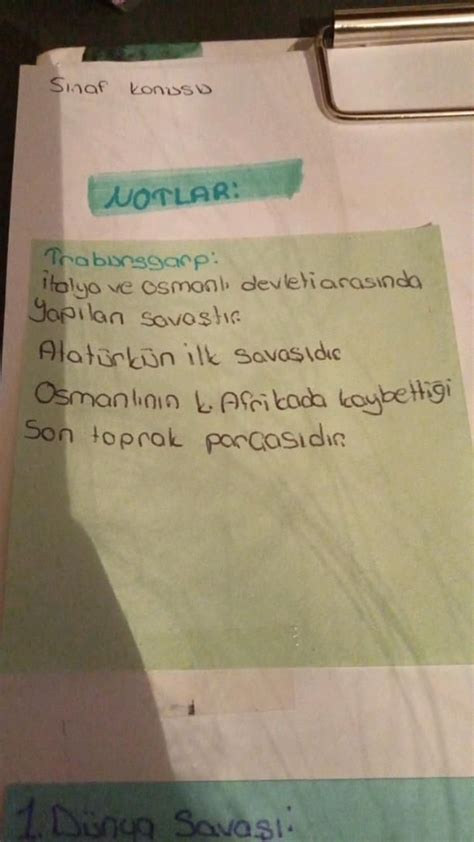 Sınaf konusu
NOTLAR:
Trabunsgarp:
italya ve osmanlı devleti arasında
yapılan savaştır.
Atatürkün ilk savasıdır
Osmanlının k. Afrikada kaybettiği
son toprak parçasıdır.
1. Dünya Savası: